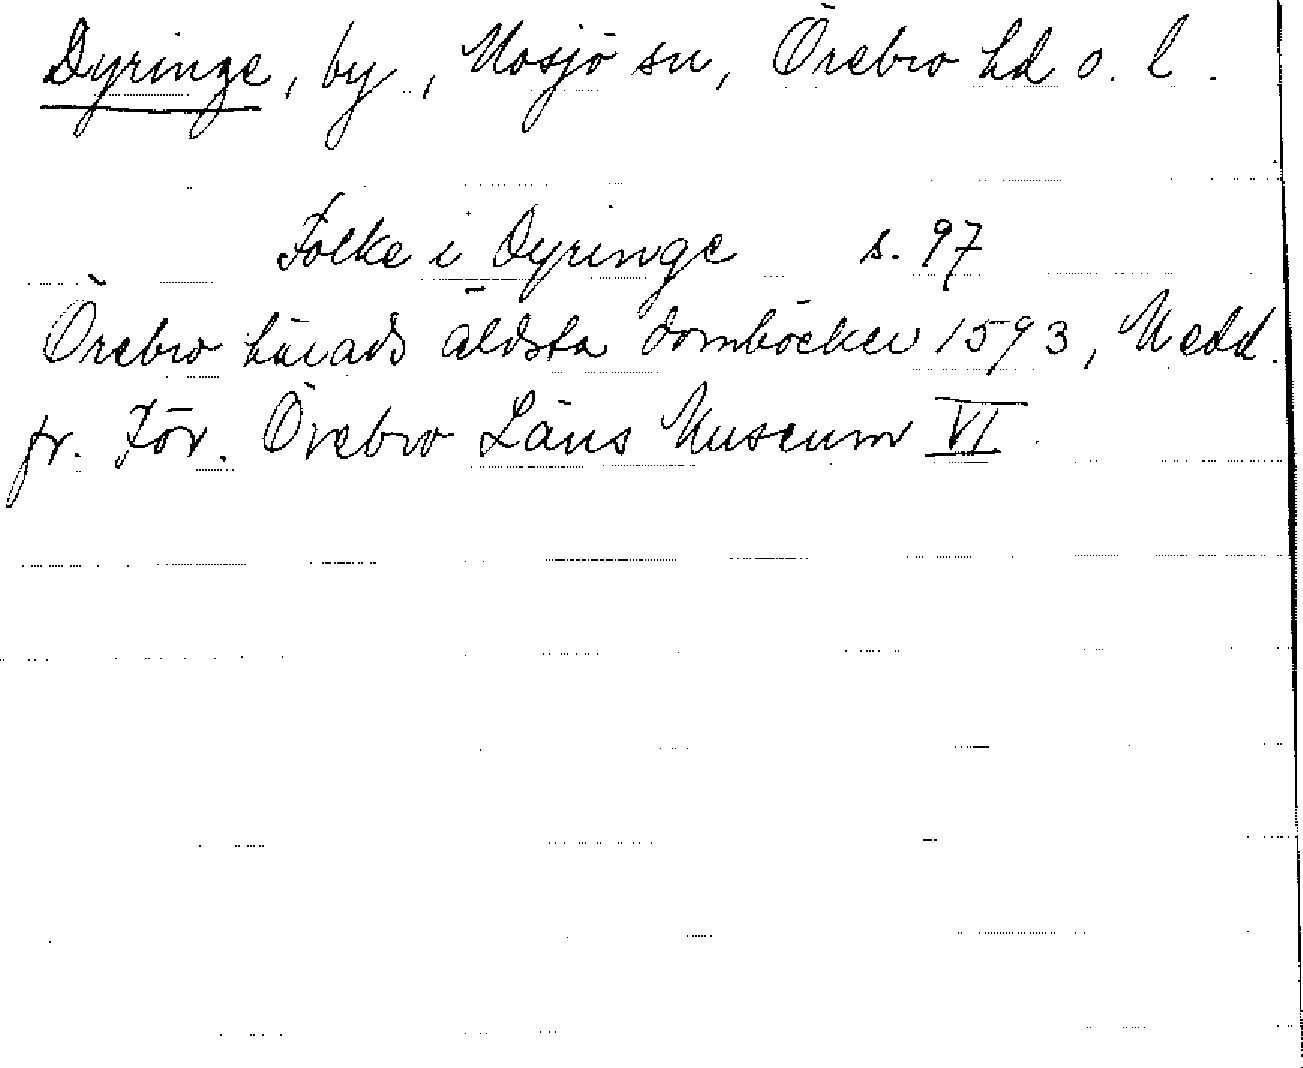 Dyringe, by, Mosjö sn, Örebro hd o. l.
Folke i Dyringe s. 97
Örebro härads äldsta domböcker 1593, Medd.
fr. För. Örebro Läns Museum VI